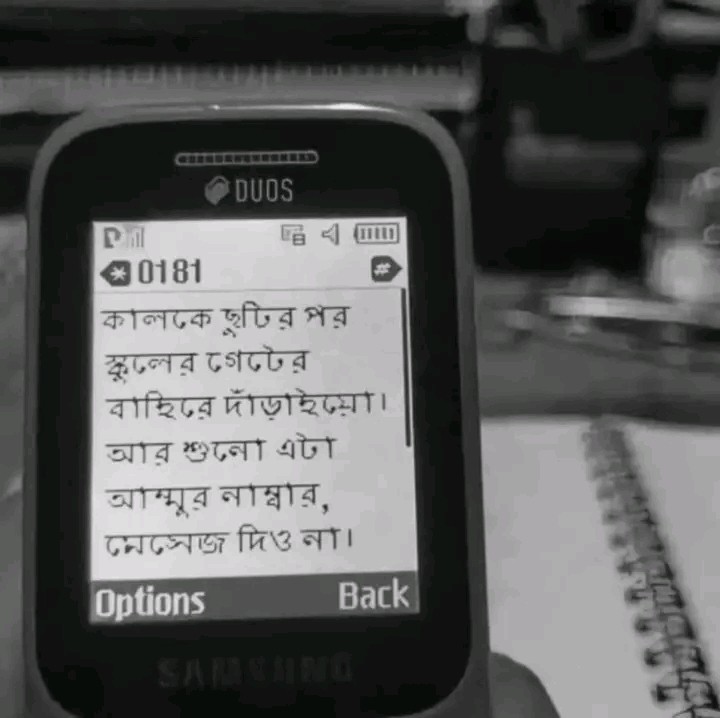 DUOS
* 0181 #
কালকে ছুটির পর
স্কুলের গেটের
বাহিরে দাঁড়াইয়ো।
আর শুনো এটা
আম্মুর নাম্বার,
মেসেজ দিও না।
Options Back
SAMSUNG